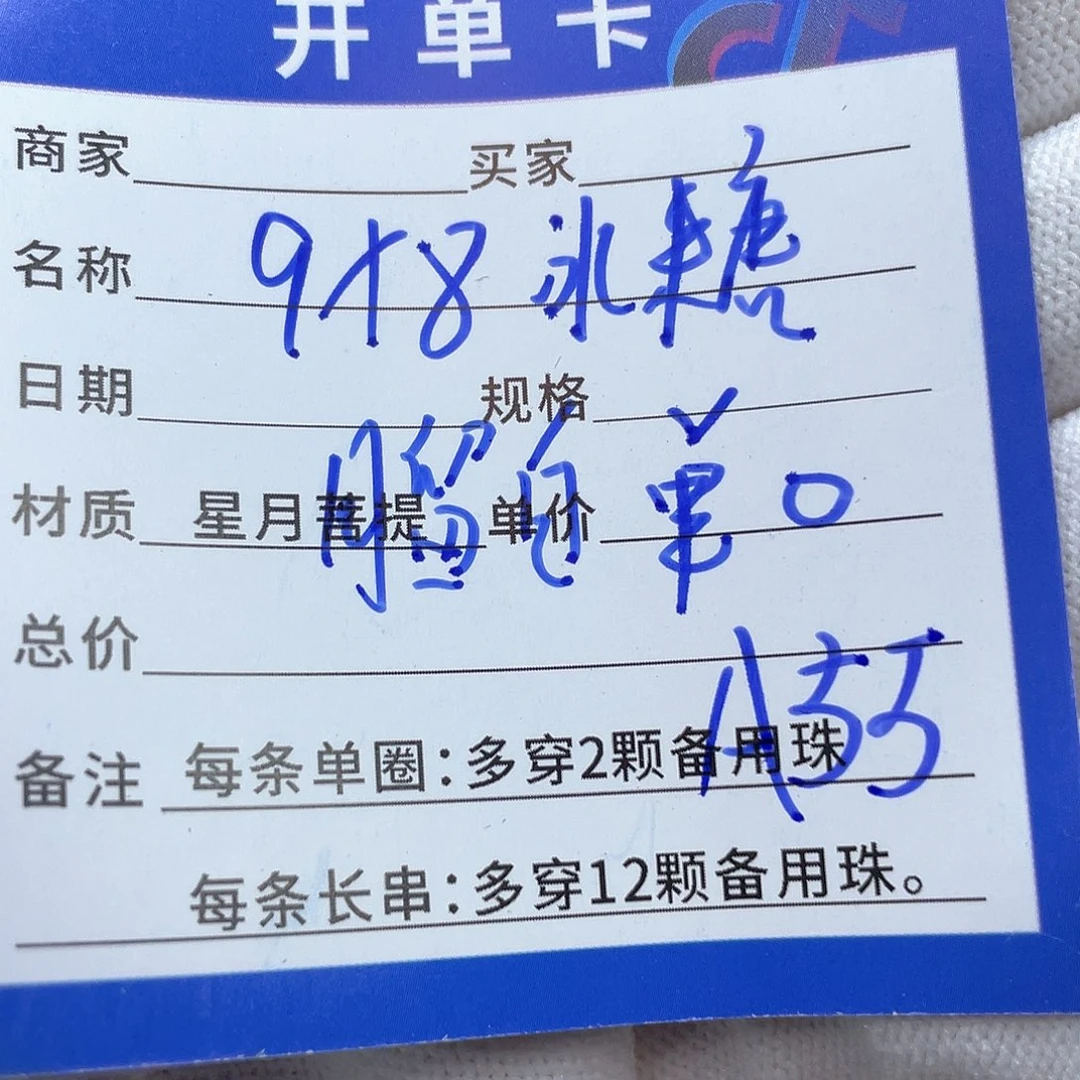 开单卡
商家 买家
名称 9×8 冰糖
日期 规格
材质 星月菩提 单价
腊白 单〇
总价
备注 每条单圈:多穿2颗备用珠
每条长串:多穿12颗备用珠。